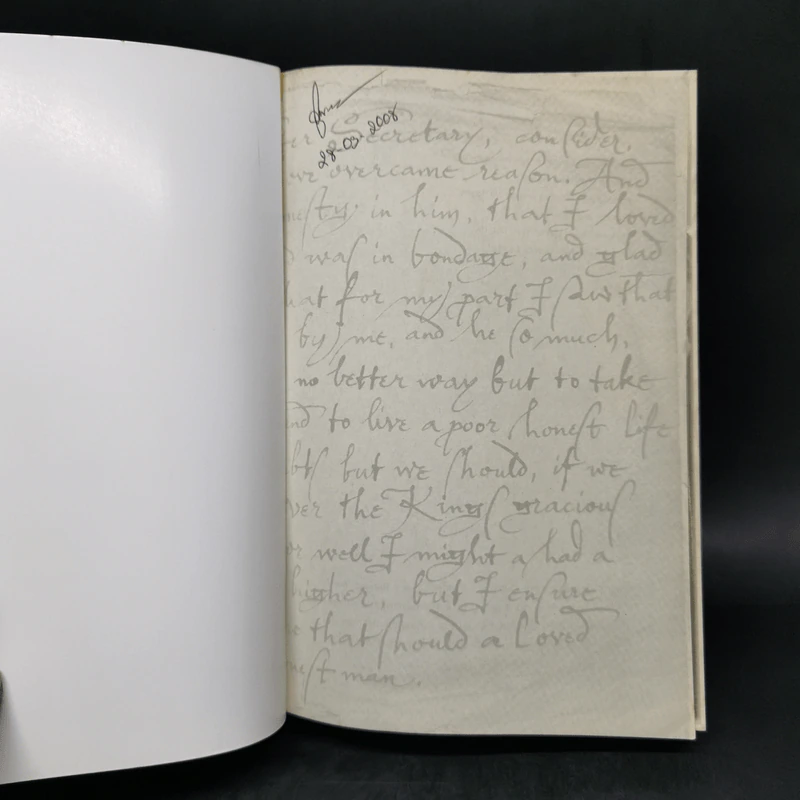 28-03-2008
er Secretary, conſider,
we overcame reaſon. And
neſty in him, that I loved
d waſ in bondage, and glad
hat for my part I ſaw that
by me, and he ſo much,
no better way but to take
and to live a poor honeſt life
btſ but we ſhould, if we
ver the Kingſ graciouſ
or well I might a had a
higher, but I enſure
e that ſhould a loved
neſt man.